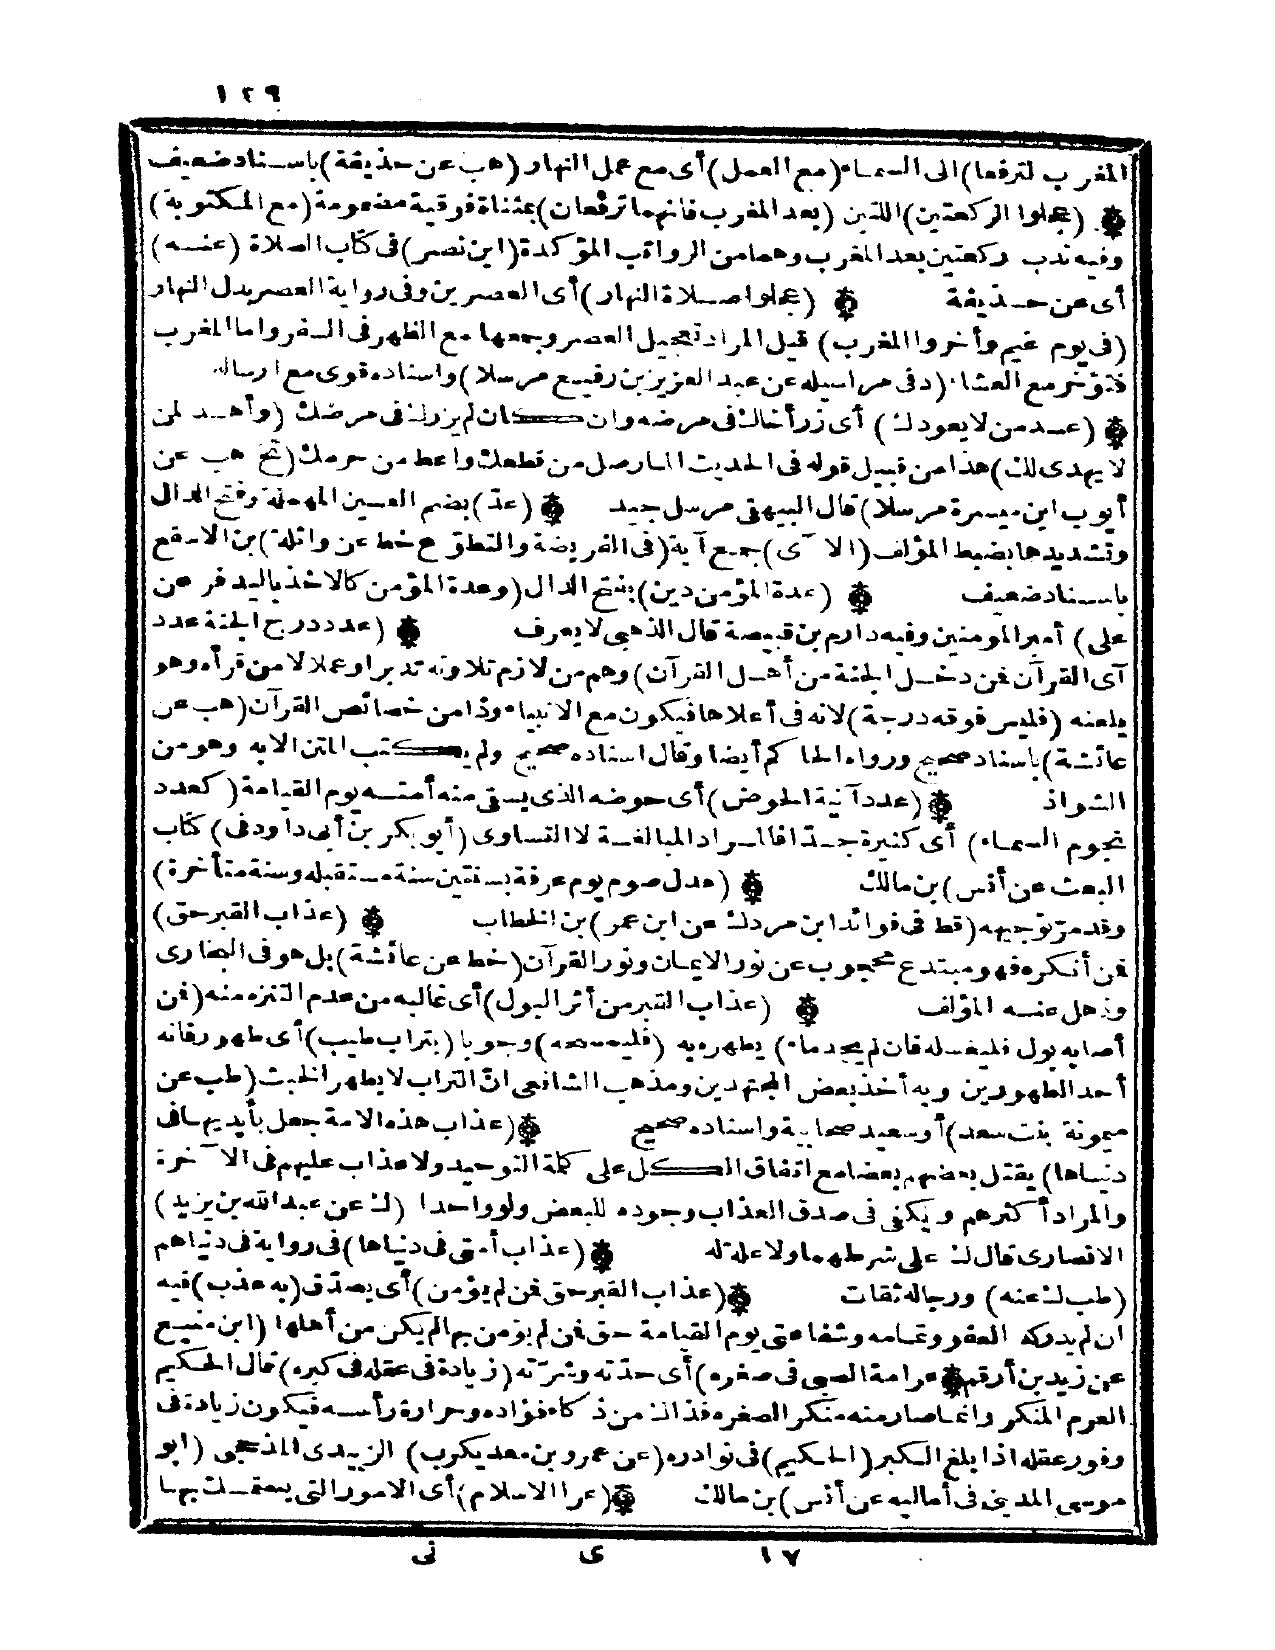 ١٢٩
المغرب لترفعا) الى السماء (مع العمل) أى مع عمل النهار (هب عن حذيفة) باسناد ضعيف
(عجلوا الركعتين) اللتين (بعد المغرب فانهما ترفعان) بمثناة فوقية مضمومة (مع المكتوبة)
وفيه ندب ركعتين بعد المغرب وهما من الرواتب المؤكدة (ابن نصر) فى كتاب الصلاة (عنه)
أى عن حذيفة (عجلوا صلاة النهار) أى العصرين وفى رواية العصر بدل النهار
(فى يوم غيم وأخروا المغرب) قيل المراد تعجيل العصر وجمعها مع الظهر فى السفر واما المغرب
فتؤخر مع العشاء (د فى مراسيله عن عبد العزيز بن رفيع مرسلا) واسناده قوى مع ارساله
(عد من لا يعودك) أى زر أخاك فى مرضه وان كان لم يزرك فى مرضك (وأهد لمن
لا يهدى لك) هذا من قبيل قوله فى الحديث المار صل من قطعك واعط من حرمك (تخ هب عن
أيوب ابن ميسرة مرسلا) قال البيهقى مرسل جيد (عد) بضم العين المهملة وفتح الدال
وتشديدها بضبط المؤلف (الآى) جمع آية (فى الفريضة والتطوّع خط عن واثلة) بن الاسقع
باسناد ضعيف (عدة المؤمن دين) بفتح الدال (وعدة المؤمن كالاخذ باليد فر عن
على) أمير المومنين وفيه دارم بن قبيصة قال الذهبى لا يعرف (عدد درج الجنة عدد
آى القرآن فمن دخل الجنة من أهل القرآن) وهم من لازم تلاوته تدبرا وعملا لا من قرأه وهو
يلعنه (فليس فوقه درجة) لانه فى أعلاها فيكون مع الانبياء وذا من خصائص القرآن (هب عن
عائشة) باسناد صحيح ورواه الحاكم أيضا وقال اسناده صحيح ولم يكتب المتن الا به وهو من
الشواذ (عدد آنية الحوض) أى حوضه الذى يسقى منه أمته يوم القيامة (كعدد
نجوم السماء) أى كثيرة جدّا فالمراد المبالغة لا التساوى (أبو بكر بن أبى داود فى) كتاب
البعث عن أنس) بن مالك (عدل صوم يوم عرفة بسنتين سنة مستقبله وسنة متأخرة)
وقد مرّ توجيهه (قط فى فوائد ابن مردك عن ابن عمر) بن الخطاب (عذاب القبر حق)
فمن أنكره فهو مبتدع محجوب عن نور الايمان ونور القرآن (خط عن عائشة) بل هو فى البخارى
وذهل عنه المؤلف (عذاب القبر من أثر البول) أى غالبه من عدم التنزه منه (فمن
أصابه بول فليغسله فان لم يجد ماء) يطهره به (فليمسحه) وجوبا (بتراب طيب) أى طهور فانه
أحد الطهورين وبه أخذ بعض المجتهدين ومذهب الشافعى انّ التراب لا يطهر الخبث (طب عن
ميمونة بنت سعد) أو سعيد صحابية واسناده صحيح (عذاب هذه الامة جعل بأيديها فى
دنياها) يقتل بعضهم بعضا مع اتفاق الكل على كلمة التوحيد ولا عذاب عليهم فى الآخرة
والمراد أكثرهم ويكفى فى صدق العذاب وجوده للبعض ولو واحدا (ك عن عبد الله بن يزيد)
الانصارى قال ك على شرطهما ولا علة له (عذاب أمتى فى دنياها) فى رواية فى دنياهم
(طب ك عنه) ورجاله ثقات (عذاب القبر حق فمن لم يؤمن) أى يصدّق (به عذب) فيه
ان لم يدركه العفو وتمامه وشفاعتى يوم القيامة حق فمن لم يؤمن بها لم يكن من أهلها (ابن منيع
عن زيد بن أرقم عرامة الصبى فى صغره) أى حدّته وشرّته (زيادة فى عقله فى كبره) قال الحكيم
العرم المنكر وانما صار منه منكر الصغره فذاك من ذكاء فؤاده وحرارة رأسه فيكون زيادة فى
وفور عقله اذا بلغ الكبر (الحكيم) فى نوادره (عن عمرو بن معد يكرب) الزبيدى المذحجى (ابو
موسى المدينى فى أماليه عن أنس) بن مالك (عرا الاسلام) أى الامور التى يستمسك بها
١٧ ى نى